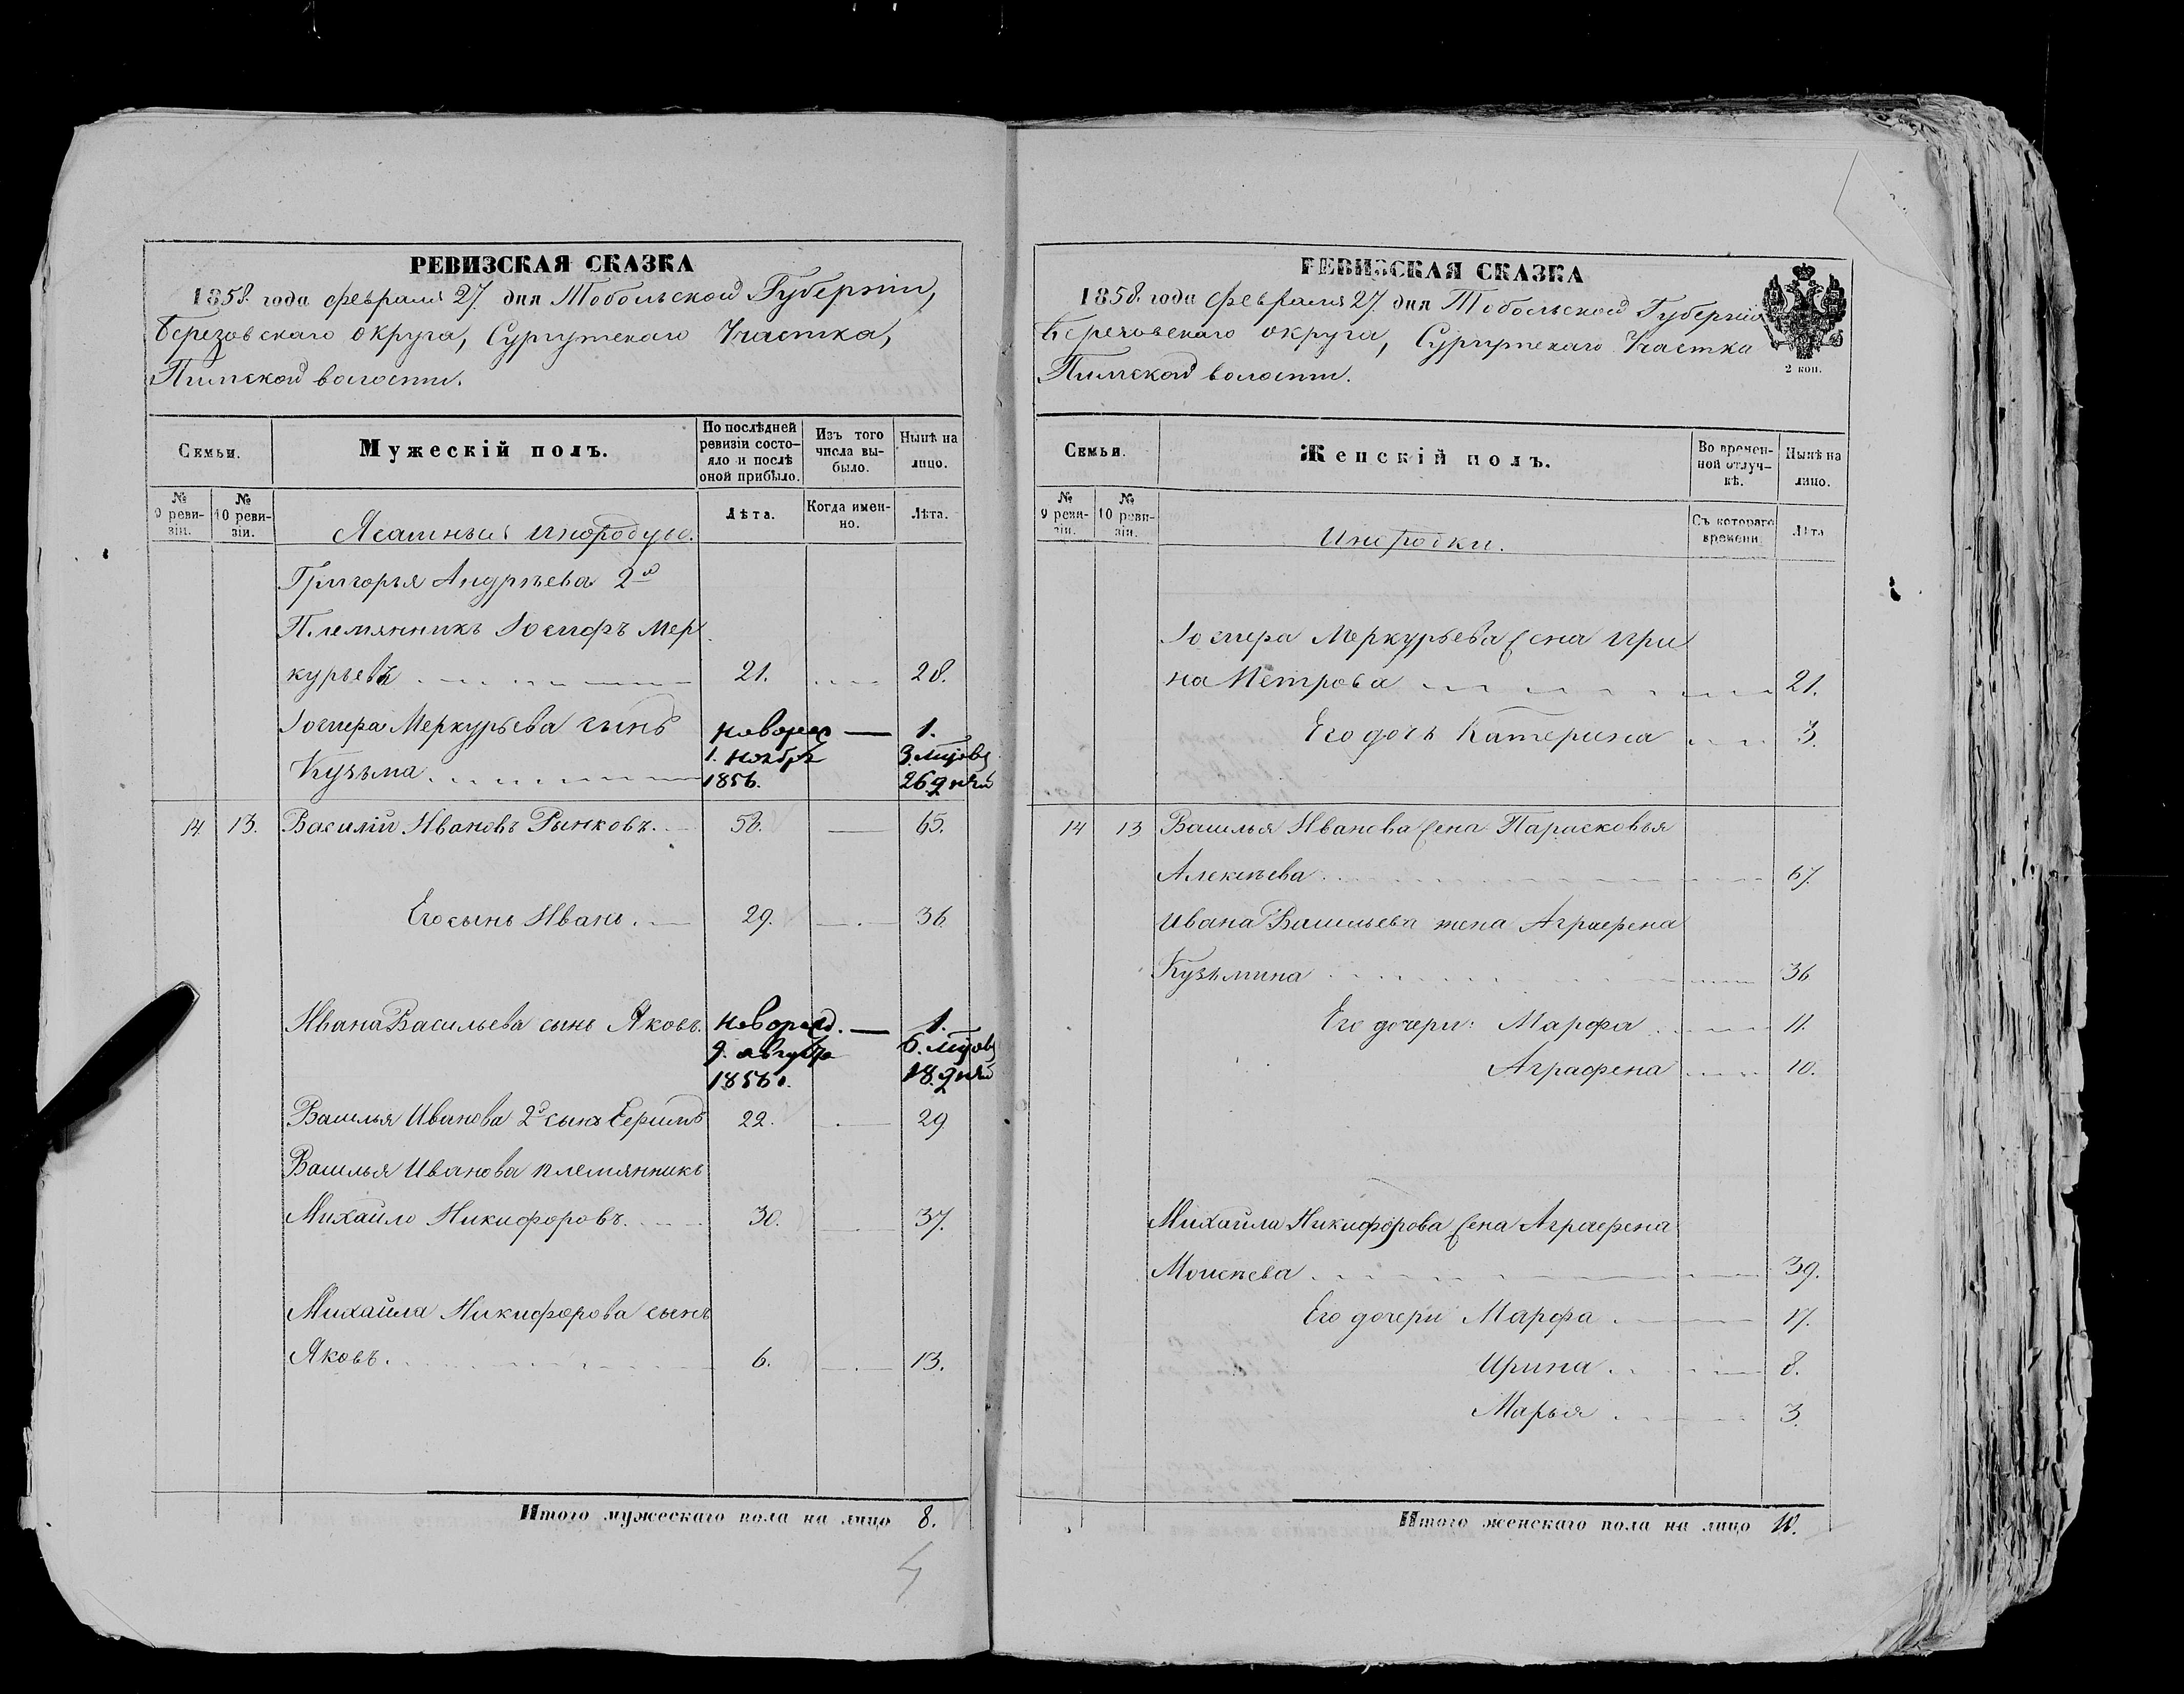 РЕВИЗСКАЯ СКАЗКА
1858. года февраля 27. дня Тобольской Губерніи,
Березовскаго округа, Сургутскаго Участка,
Пимской волости.
Семьи.
Мужескій полъ.
По послѣдней ревизіи состояло и послѣ оной прибыло.
Изъ того числа выбыло.
Нынѣ на лицо.
№ 9 ревизіи.
№ 10 ревизіи.
Ясашные инородцы.
Лѣта.
Когда именно.
Лѣта.
Григорья Андрѣева 2й
Племянникъ Іосифъ Мер
курьевъ 21. 28.
Іосифа Меркурьева сынъ новорож 1.
1. ноября 3. мѣсяца
Кузьма 1856. 26 дней
14 13. Василій Ивановъ Рынковъ. 58. 65.
Его сынъ Иванъ. 29. 36
Ивана Васильева сынъ Яковъ. новорожд. 1.
9. августа 6. мѣсяцовъ
1856. 18. дней
Василья Иванова 2й сынъ Ефимъ 22. 29
Василья Иванова племянникъ
Михайло Никифоровъ. 30. 37.
Михайла Никифорова сынъ
Яковъ. 6. 13.
Итого мужескаго пола на лицо 8.
РЕВИЗСКАЯ СКАЗКА
1858. года февраля 27. дня Тобольской Губерніи
Березовскаго округа, Сургутскаго Участка
Пимской волости.
2 коп.
Семьи.
Женскій полъ.
Во временной отлучкѣ.
Нынѣ на лицо.
№ 9 ревизіи.
№ 10 ревизіи.
Инородки.
Съ котораго времени.
Лѣта
Іосифа Меркурьева жена Ири
на Петрова 21.
Его дочь Катерина 3.
14 13 Василья Иванова жена Парасковья
Алексѣева. 67.
Ивана Васильева жена Аграфена
Кузьмина 36
Его дочери: Марфа 11.
Аграфена 10.
Михайла Никифорова жена Аграфена
Моисѣева. 39.
Его дочери Марфа. 17.
Ирина. 8.
Марья 3.
Итого женскаго пола на лицо 10.